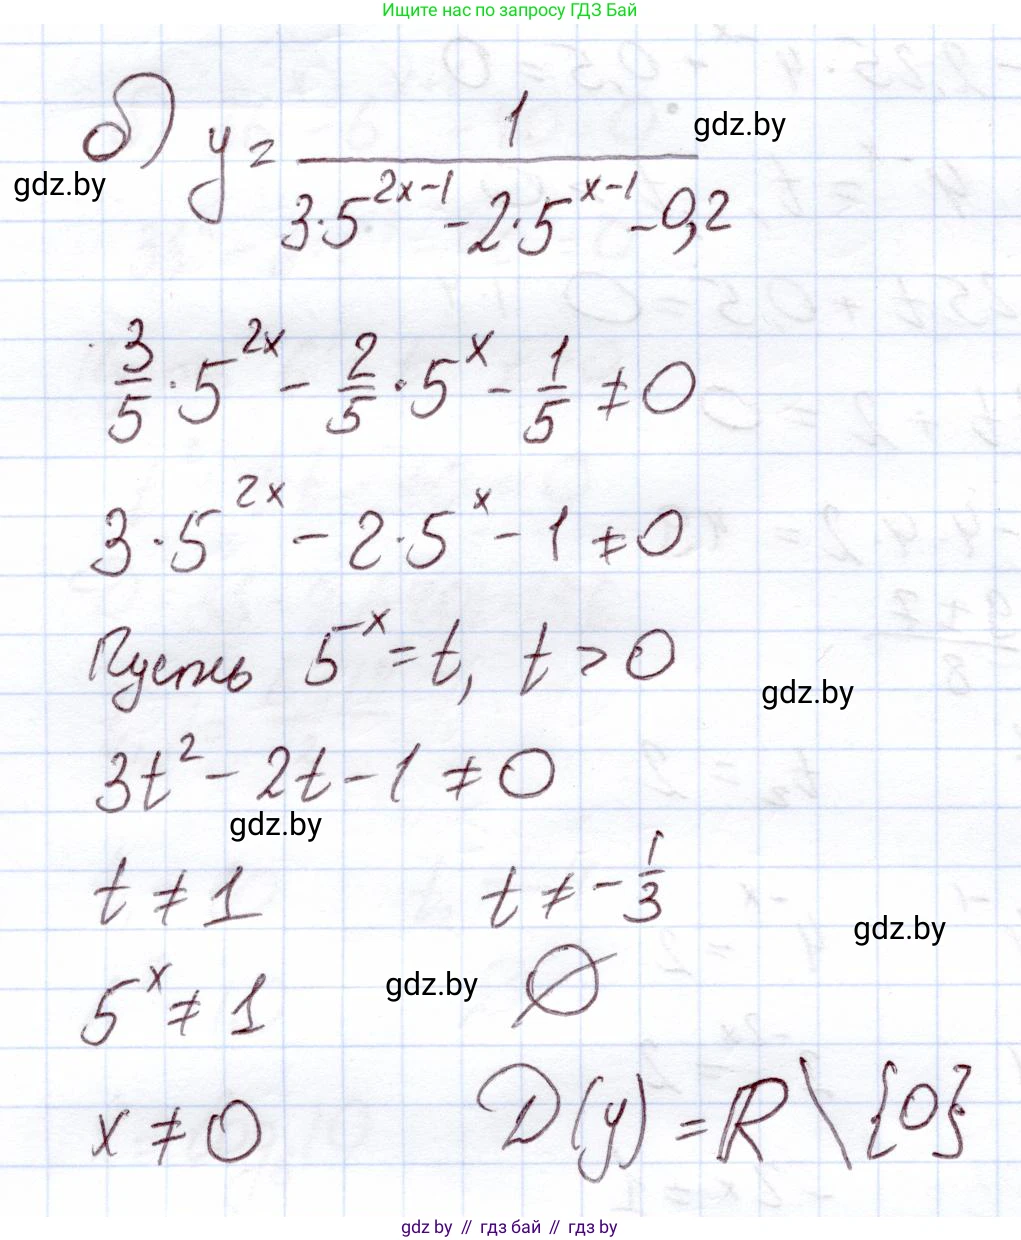 Ищите нас по запросу ГДЗ Бай
б) y = 1 / (3·5^(2x-1) - 2·5^(x-1) - 0,2)
gdz.by
gdz.by
3/5 · 5^(2x) - 2/5 · 5^x - 1/5 ≠ 0
3·5^(2x) - 2·5^x - 1 ≠ 0
Пусть 5^(-x) = t, t > 0
gdz.by
3t² - 2t - 1 ≠ 0
gdz.by
t ≠ 1 t ≠ -1/3
gdz.by
5^x ≠ 1 gdz.by ∅
x ≠ 0 D(y) = R \ {0}
gdz by // гдз бай // gdz by